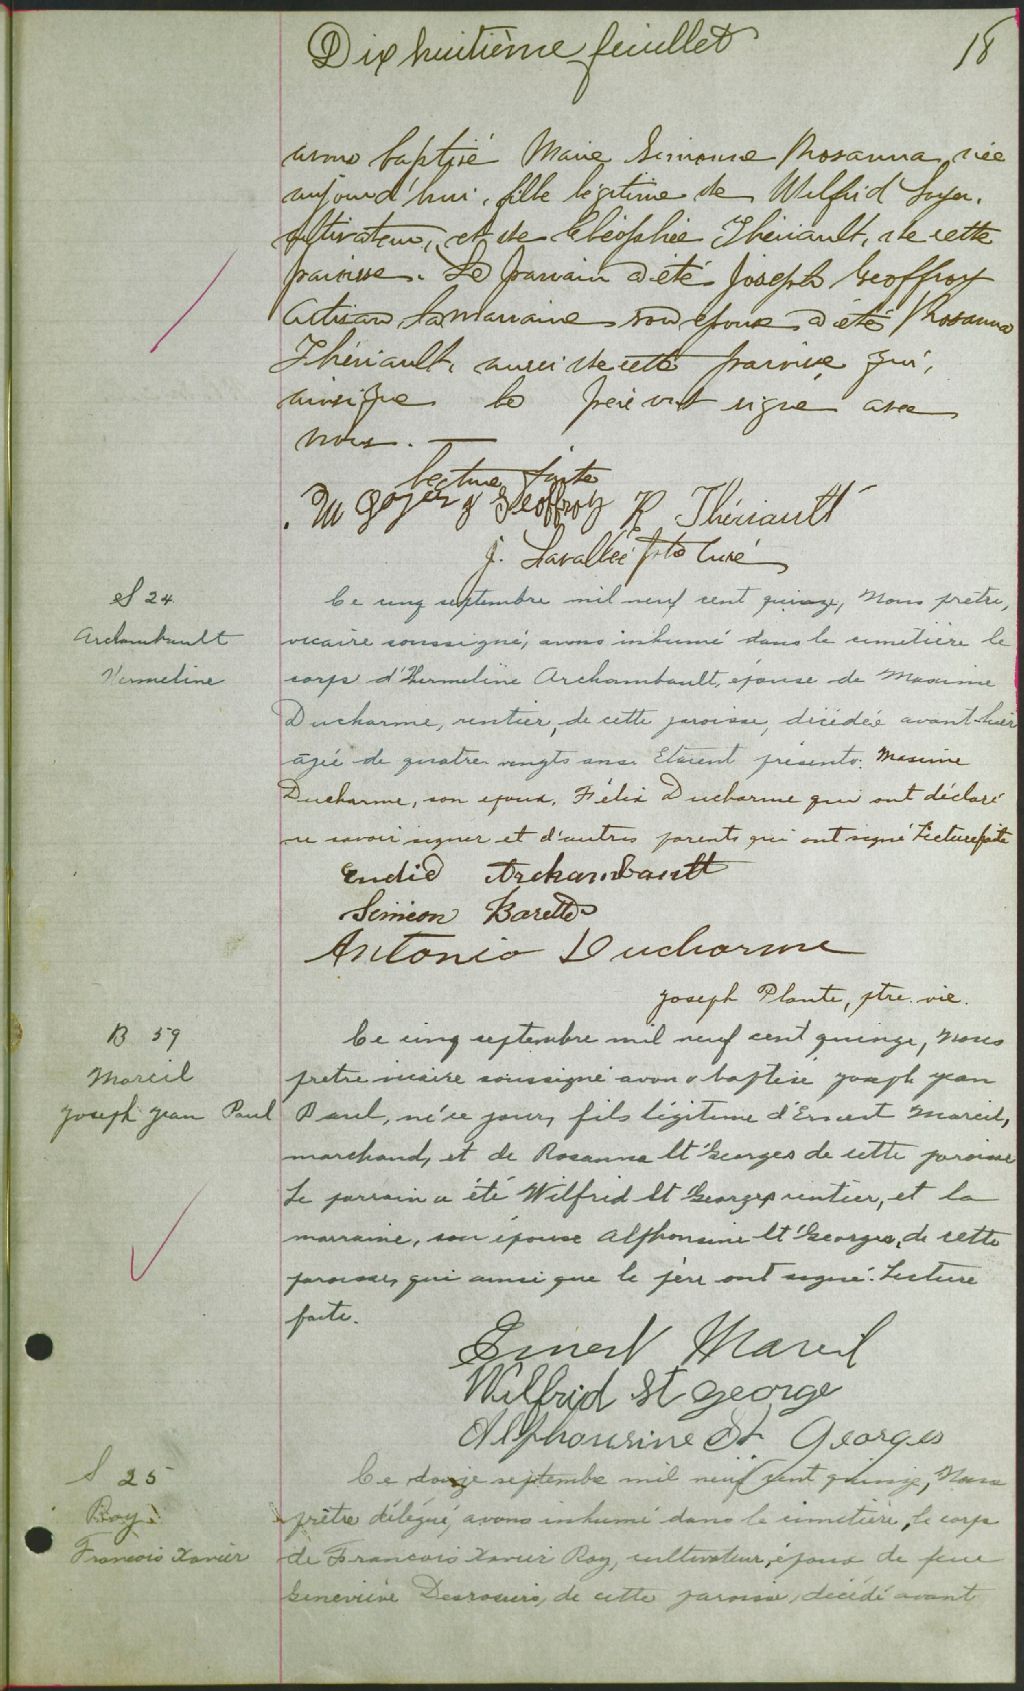 Dix huitième feuillet 18
avons baptisé Marie Simonne Rosanna, née
aujourd'hui, fille légitime de Wilfrid Goyer,
cultivateur, et de Cléophée Thériault, de cette
paroisse. Le parrain a été Joseph Geoffroy
artisan la marraine son épouse a été Rosanna
Thériault, aussi de cette paroisse qui,
ainsi que le père ont signé avec
nous.
Lecture faite
W Goyer J Geoffroy R Thériault
J. Lavallée ptre Curé
S 24
Archambault
Vermeline
Ce cinq septembre mil neuf cent quinze, Nous prêtre,
vicaire soussigné, avons inhumé dans le cimetière le
corps d'Hermeline Archambault, épouse de Maxime
Ducharme, rentier, de cette paroisse, décédée avant-hier
agée de quatre vingts ans. Etaient présents: Maxime
Ducharme, son époux, Félix Ducharme qui ont déclaré
ne savoir signer et d'autres parents qui ont signé Lecture faite
Archambault
Siméon Barette
Antonio Ducharme
Joseph Plante, ptre. vic.
B 59
Mareil
Joseph Jean Paul
Ce cinq septembre mil neuf cent quinze, Nous
prêtre vicaire soussigné avons baptisé Joseph Jean
Paul, né ce jour, fils légitime d'Ernest Mareil,
marchand, et de Rosanna St Georges de cette paroisse
Le parrain a été Wilfrid St Georges rentier, et la
marraine, son épouse Alphonsine St Georges, de cette
paroisse, qui ainsi que le père ont signé. Lecture
faite.
Ernest Mareil
Wilfrid St george
Alphonsine St Georges
S 25
Roy
Francois Xavier
Ce douze septembre mil neuf cent quinze, Nous
prêtre délégué, avons inhumé dans le cimetière, le corps
de Francois Xavier Roy, cultivateur, époux de feue
Geneviève Desrosiers, de cette paroisse, décédé avant